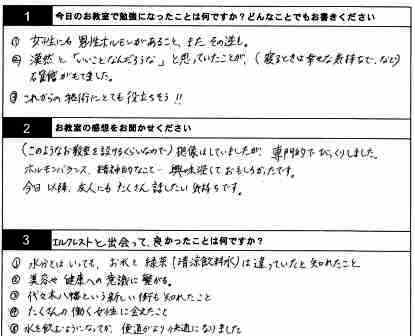 1 今日のお教室で勉強になったことは何ですか?どんなことでもお書きください
① 女性にも男性ホルモンがあること、また その逆も。
② 漠然と「いいことなんだろうな」と思っていたことが、(寝るときは幸せな気持ちで、など)
確信がもてました。
③ これからの施術にとても役立ちそう!!
2 お教室の感想をお聞かせください
(このようなお教室を設けるくらいなので)想像はしていましたが、専門的で びっくりしました。
ホルモンバランス、精神的なこと… 興味深くておもしろかったです。
今日以降、友人にもたくさん話したい気持ちです。
3 エルクレストと出会って、良かったことは何ですか?
① 水分とはいっても、お水と緑茶(清涼飲料水)は違っていたと知れたこと
② 美容や健康への意識に繋がる。
③ 代々木八幡という新しい街も知れたこと
④ たくさんの働く女性に会えたこと
⑤ 水を飲むようになってか、便通がより快適になりました